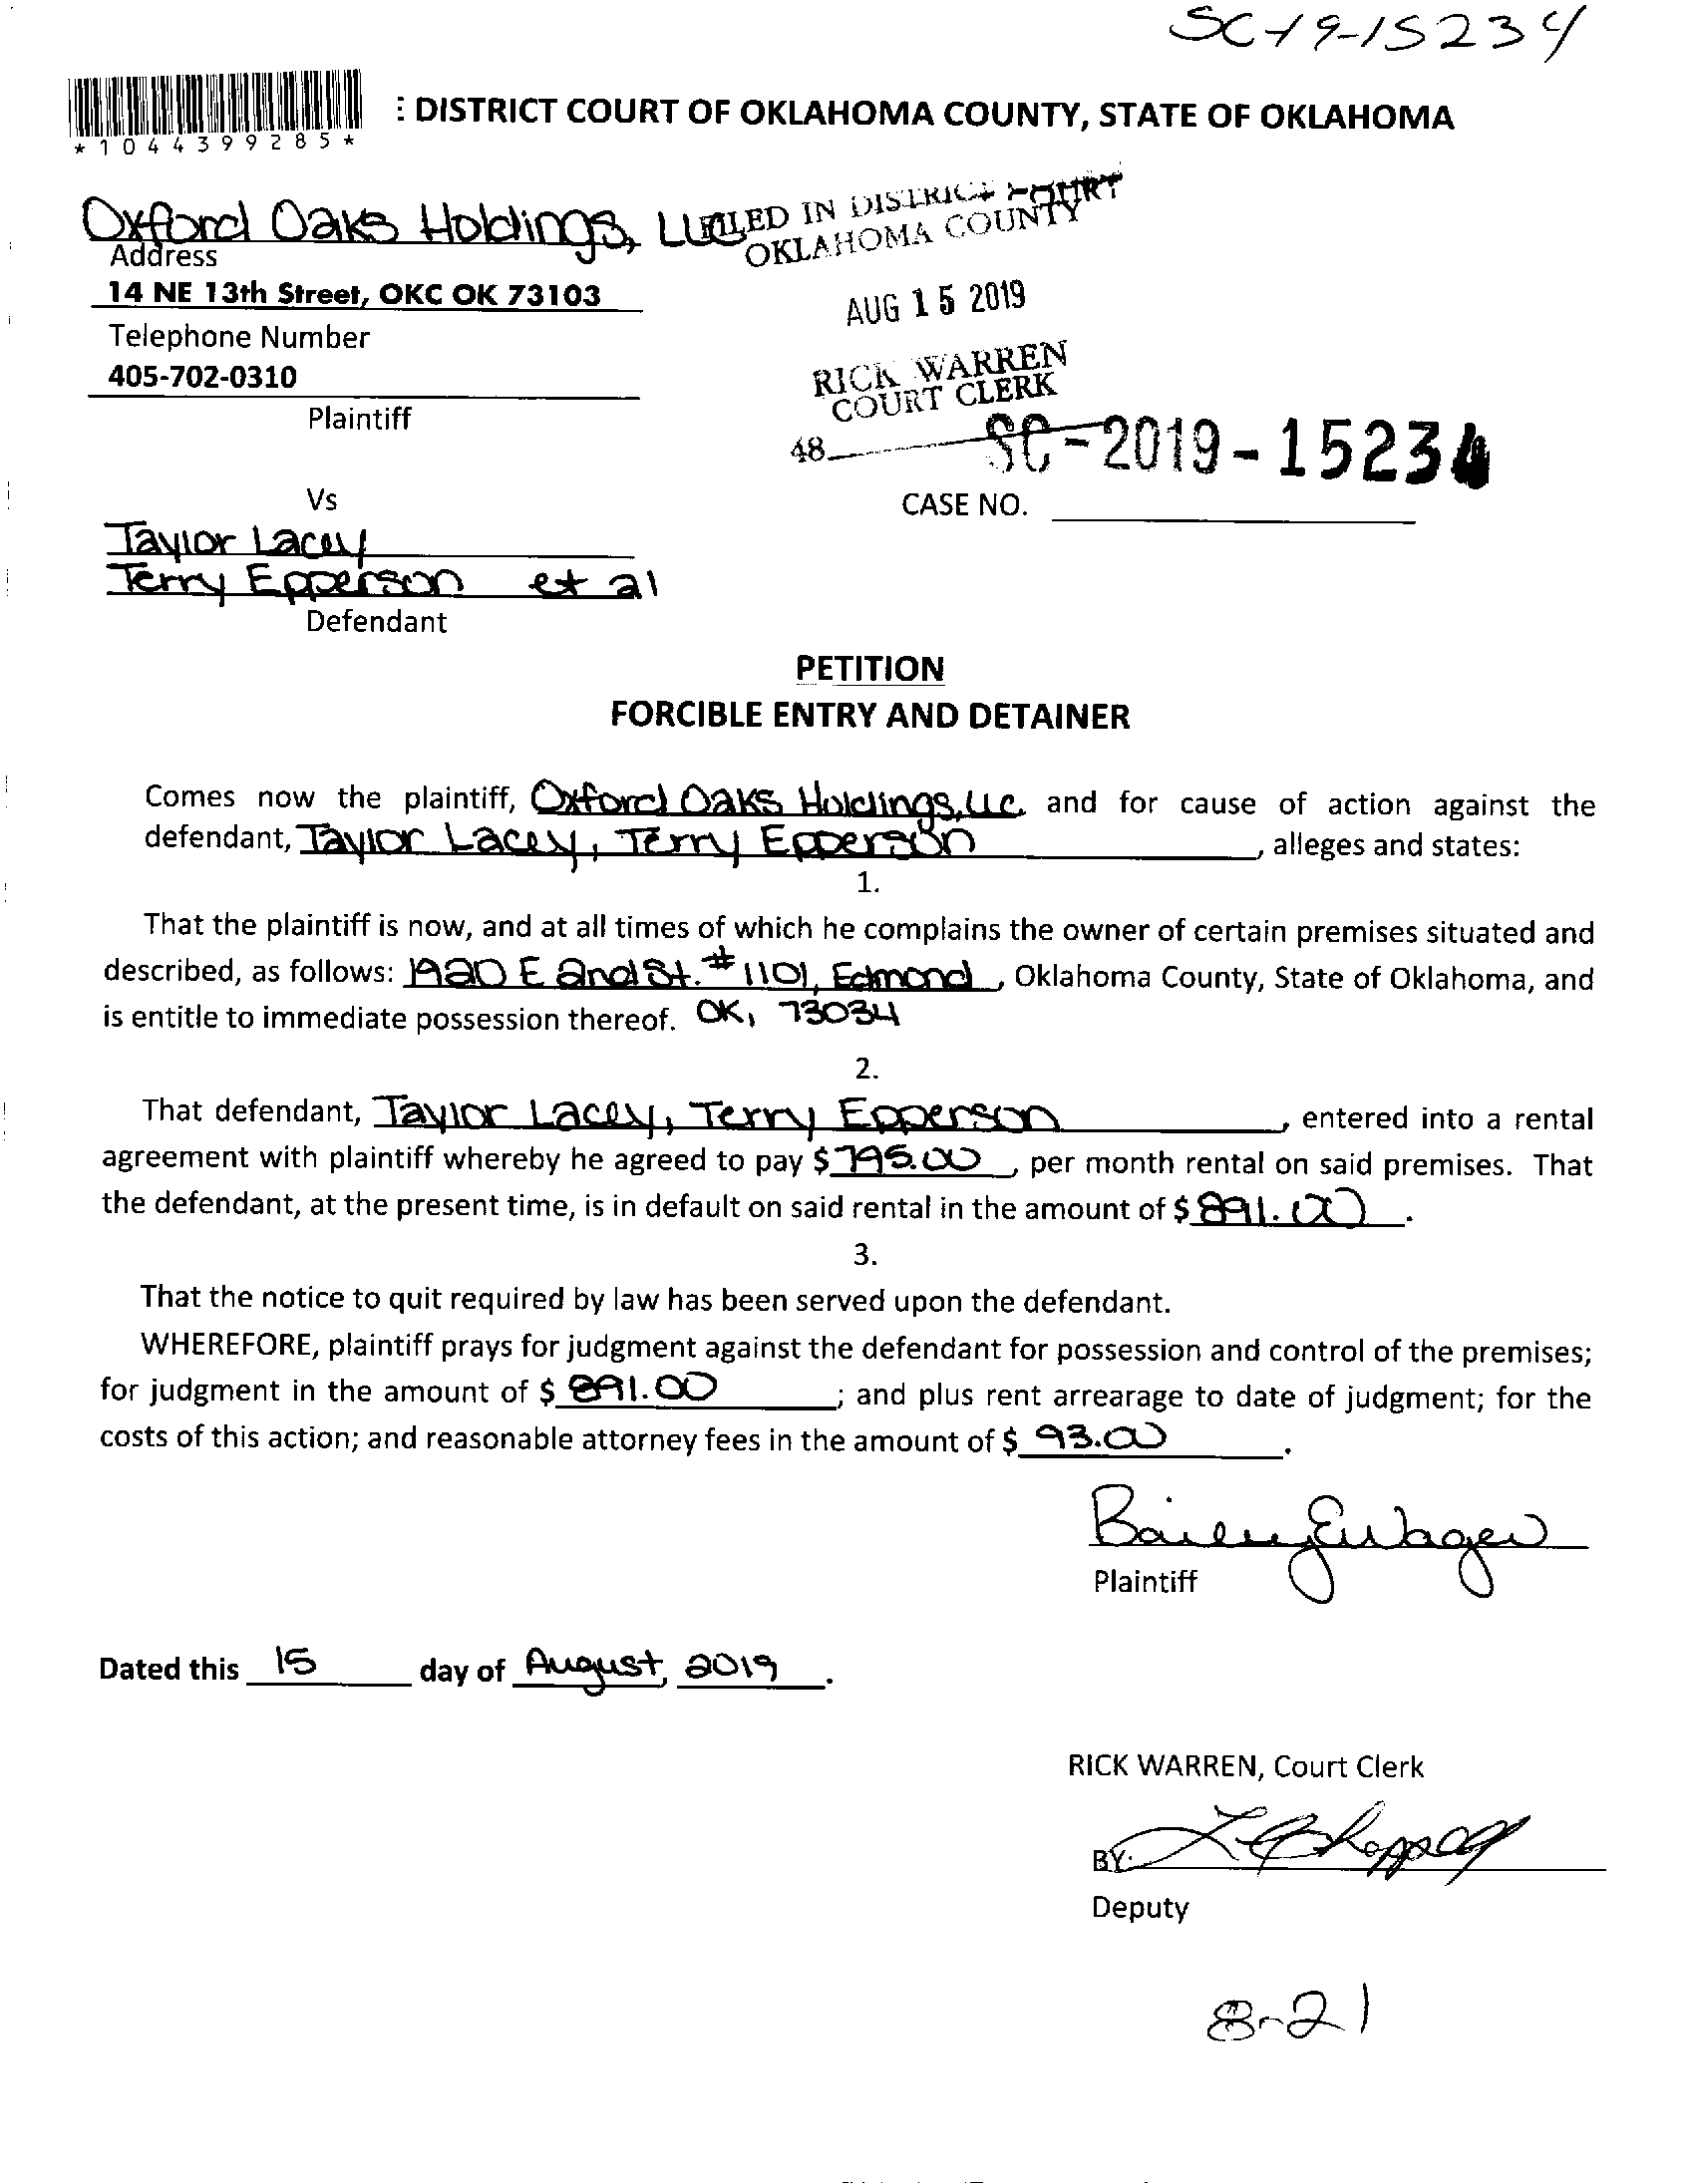 SC-19-15234
* 1 0 4 4 3 9 9 2 8 5 *
: DISTRICT COURT OF OKLAHOMA COUNTY, STATE OF OKLAHOMA
Oxford Oaks Holdings, LLC
FILED IN DISTRICT COURT
OKLAHOMA COUNTY
Address
14 NE 13th Street, OKC OK 73103
AUG 15 2019
Telephone Number
405-702-0310
RICK WARREN
COURT CLERK
Plaintiff
48
SC-2019-15234
Vs
CASE NO.
Taylor Lacey
Terry Epperson et al
Defendant
PETITION
FORCIBLE ENTRY AND DETAINER
Comes now the plaintiff, Oxford Oaks Holdings, LLC and for cause of action against the
defendant, Taylor Lacey, Terry Epperson, alleges and states:
1.
That the plaintiff is now, and at all times of which he complains the owner of certain premises situated and
described, as follows: 1920 E 2nd St. #1101, Edmond, Oklahoma County, State of Oklahoma, and
is entitle to immediate possession thereof. OK, 73034
2.
That defendant, Taylor Lacey, Terry Epperson, entered into a rental
agreement with plaintiff whereby he agreed to pay $795.00, per month rental on said premises. That
the defendant, at the present time, is in default on said rental in the amount of $891.00.
3.
That the notice to quit required by law has been served upon the defendant.
WHEREFORE, plaintiff prays for judgment against the defendant for possession and control of the premises;
for judgment in the amount of $891.00; and plus rent arrearage to date of judgment; for the
costs of this action; and reasonable attorney fees in the amount of $93.00.
Plaintiff
Dated this 15 day of August, 2019.
RICK WARREN, Court Clerk
BY:
Deputy
8-21